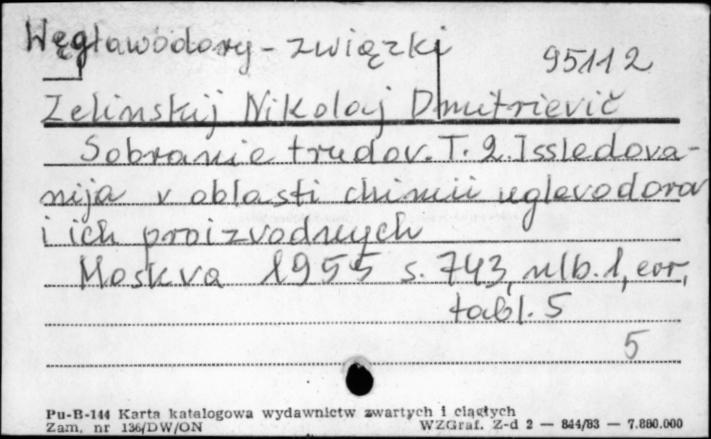 Węgławodory - związki
95112
Zelinskij Nikolaj Dmitrievič
Sobranie trudov. T. 2. Issledova-
nija v oblasti chimii uglevodorov
i ich proizvodnych
Moskva 1955 s. 743, nlb. 1, err,
tabl. 5
5
Pu-B-144 Karta katalogowa wydawnictw zwartych i ciągłych
Zam. nr 136/DW/ON WZGraf. Z-d 2 — 844/83 — 7.880.000